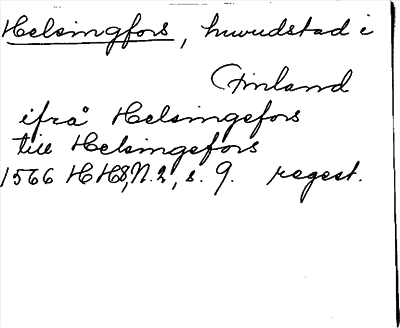 Helsingfors, huvudstad i
Finland
ifrå Helsingefors
till Helsingefors
1566 HH8, N.2, s. 9. regest.